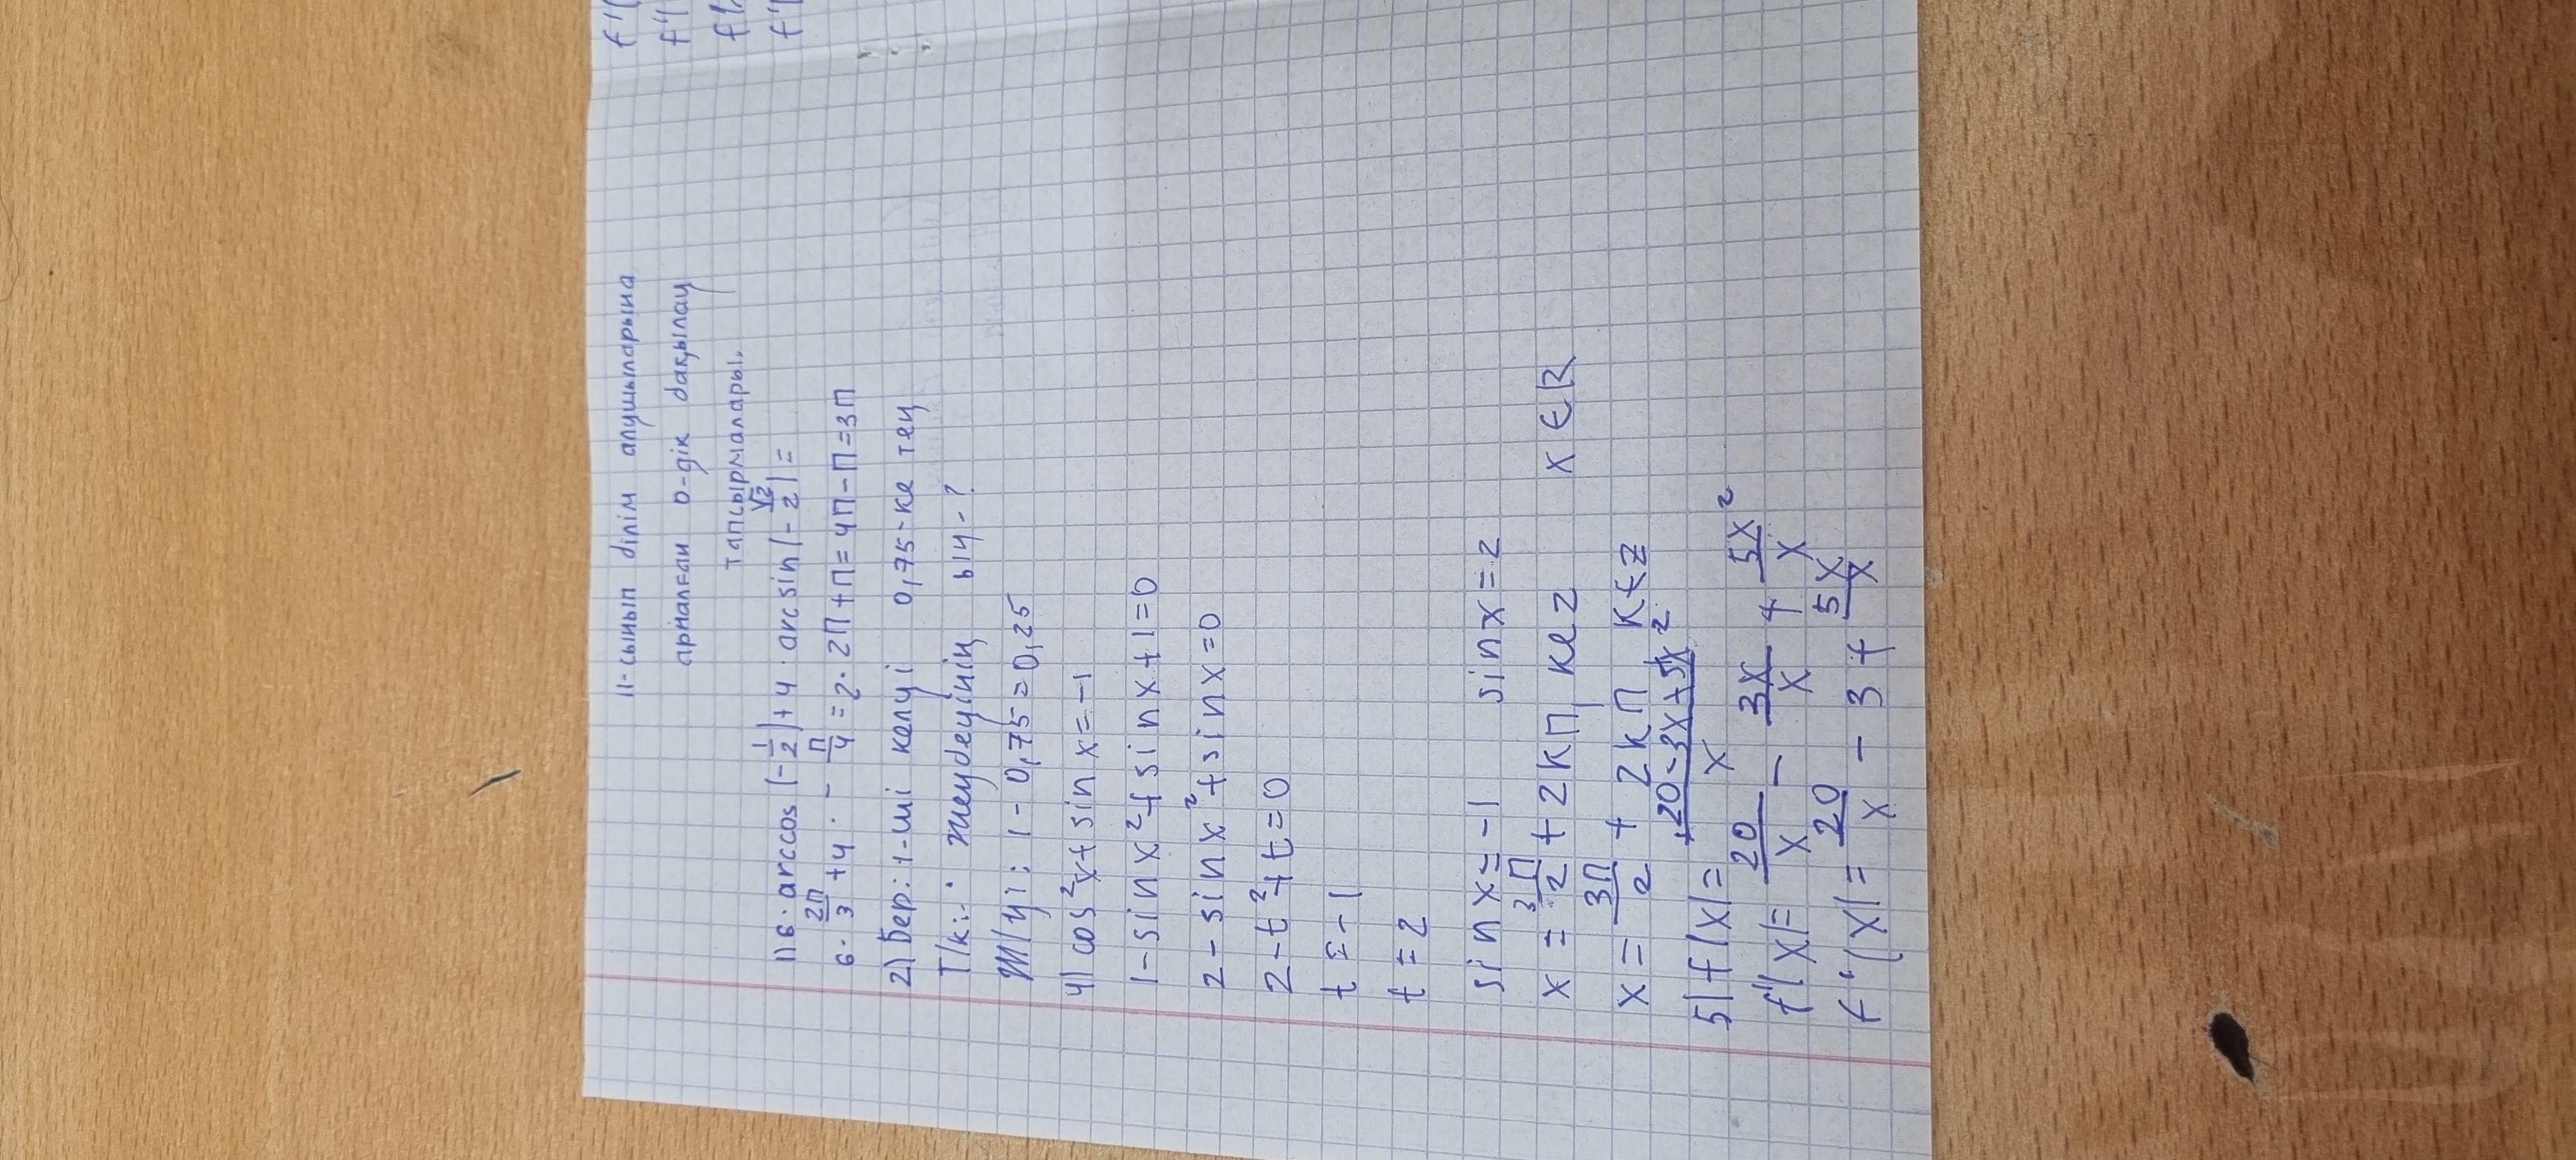 11-сынып білім алушыларына
арналған 0-дік бақылау
тапсырмалары.
1) 6 · arccos (-1/2) + 4 · arcsin (-√2/2) =
6 · 2π/3 + 4 · - π/4 = 2 · 2π + π = 4π - π = 3π
2) Бер: 1-ші келуі 0,75-ке тең
Т/к: жеңубеуінің ы/у-?
Ш/уі: 1 - 0,75 = 0,25
4) cos²x + sin x = -1
1 - sin x² + sin x + 1 = 0
2 - sin x² + sin x = 0
2 - t² + t = 0
t = -1
t = 2
sin x = -1 sin x = 2
x = 3π/2 + 2kπ, k∈z x ∈ R
x = 3π/2 + 2kπ k∈z
5) f(x) = 20-3x+5x²/x
f'(x) = 20/x - 3x/x + 5x²/x
f'(x) = 20/x - 3 + 5x/x
f'(
f'(
f'(